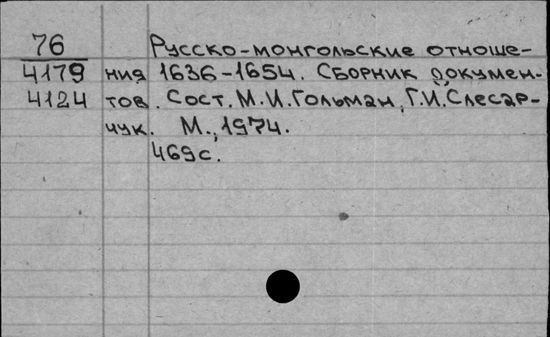 76
4179
4124
Русско-монгольские отноше-
ния 1636-1654. Сборник докумен-
тов. Сост. М.И.Гольман, Г.И.Слесар-
чук. М., 1974.
469с.